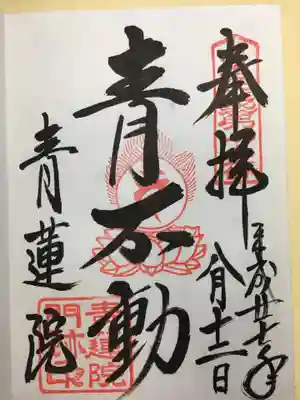 奉拝
平成廿七年
八月十二日
青不動
青蓮院
青蓮院
門跡印